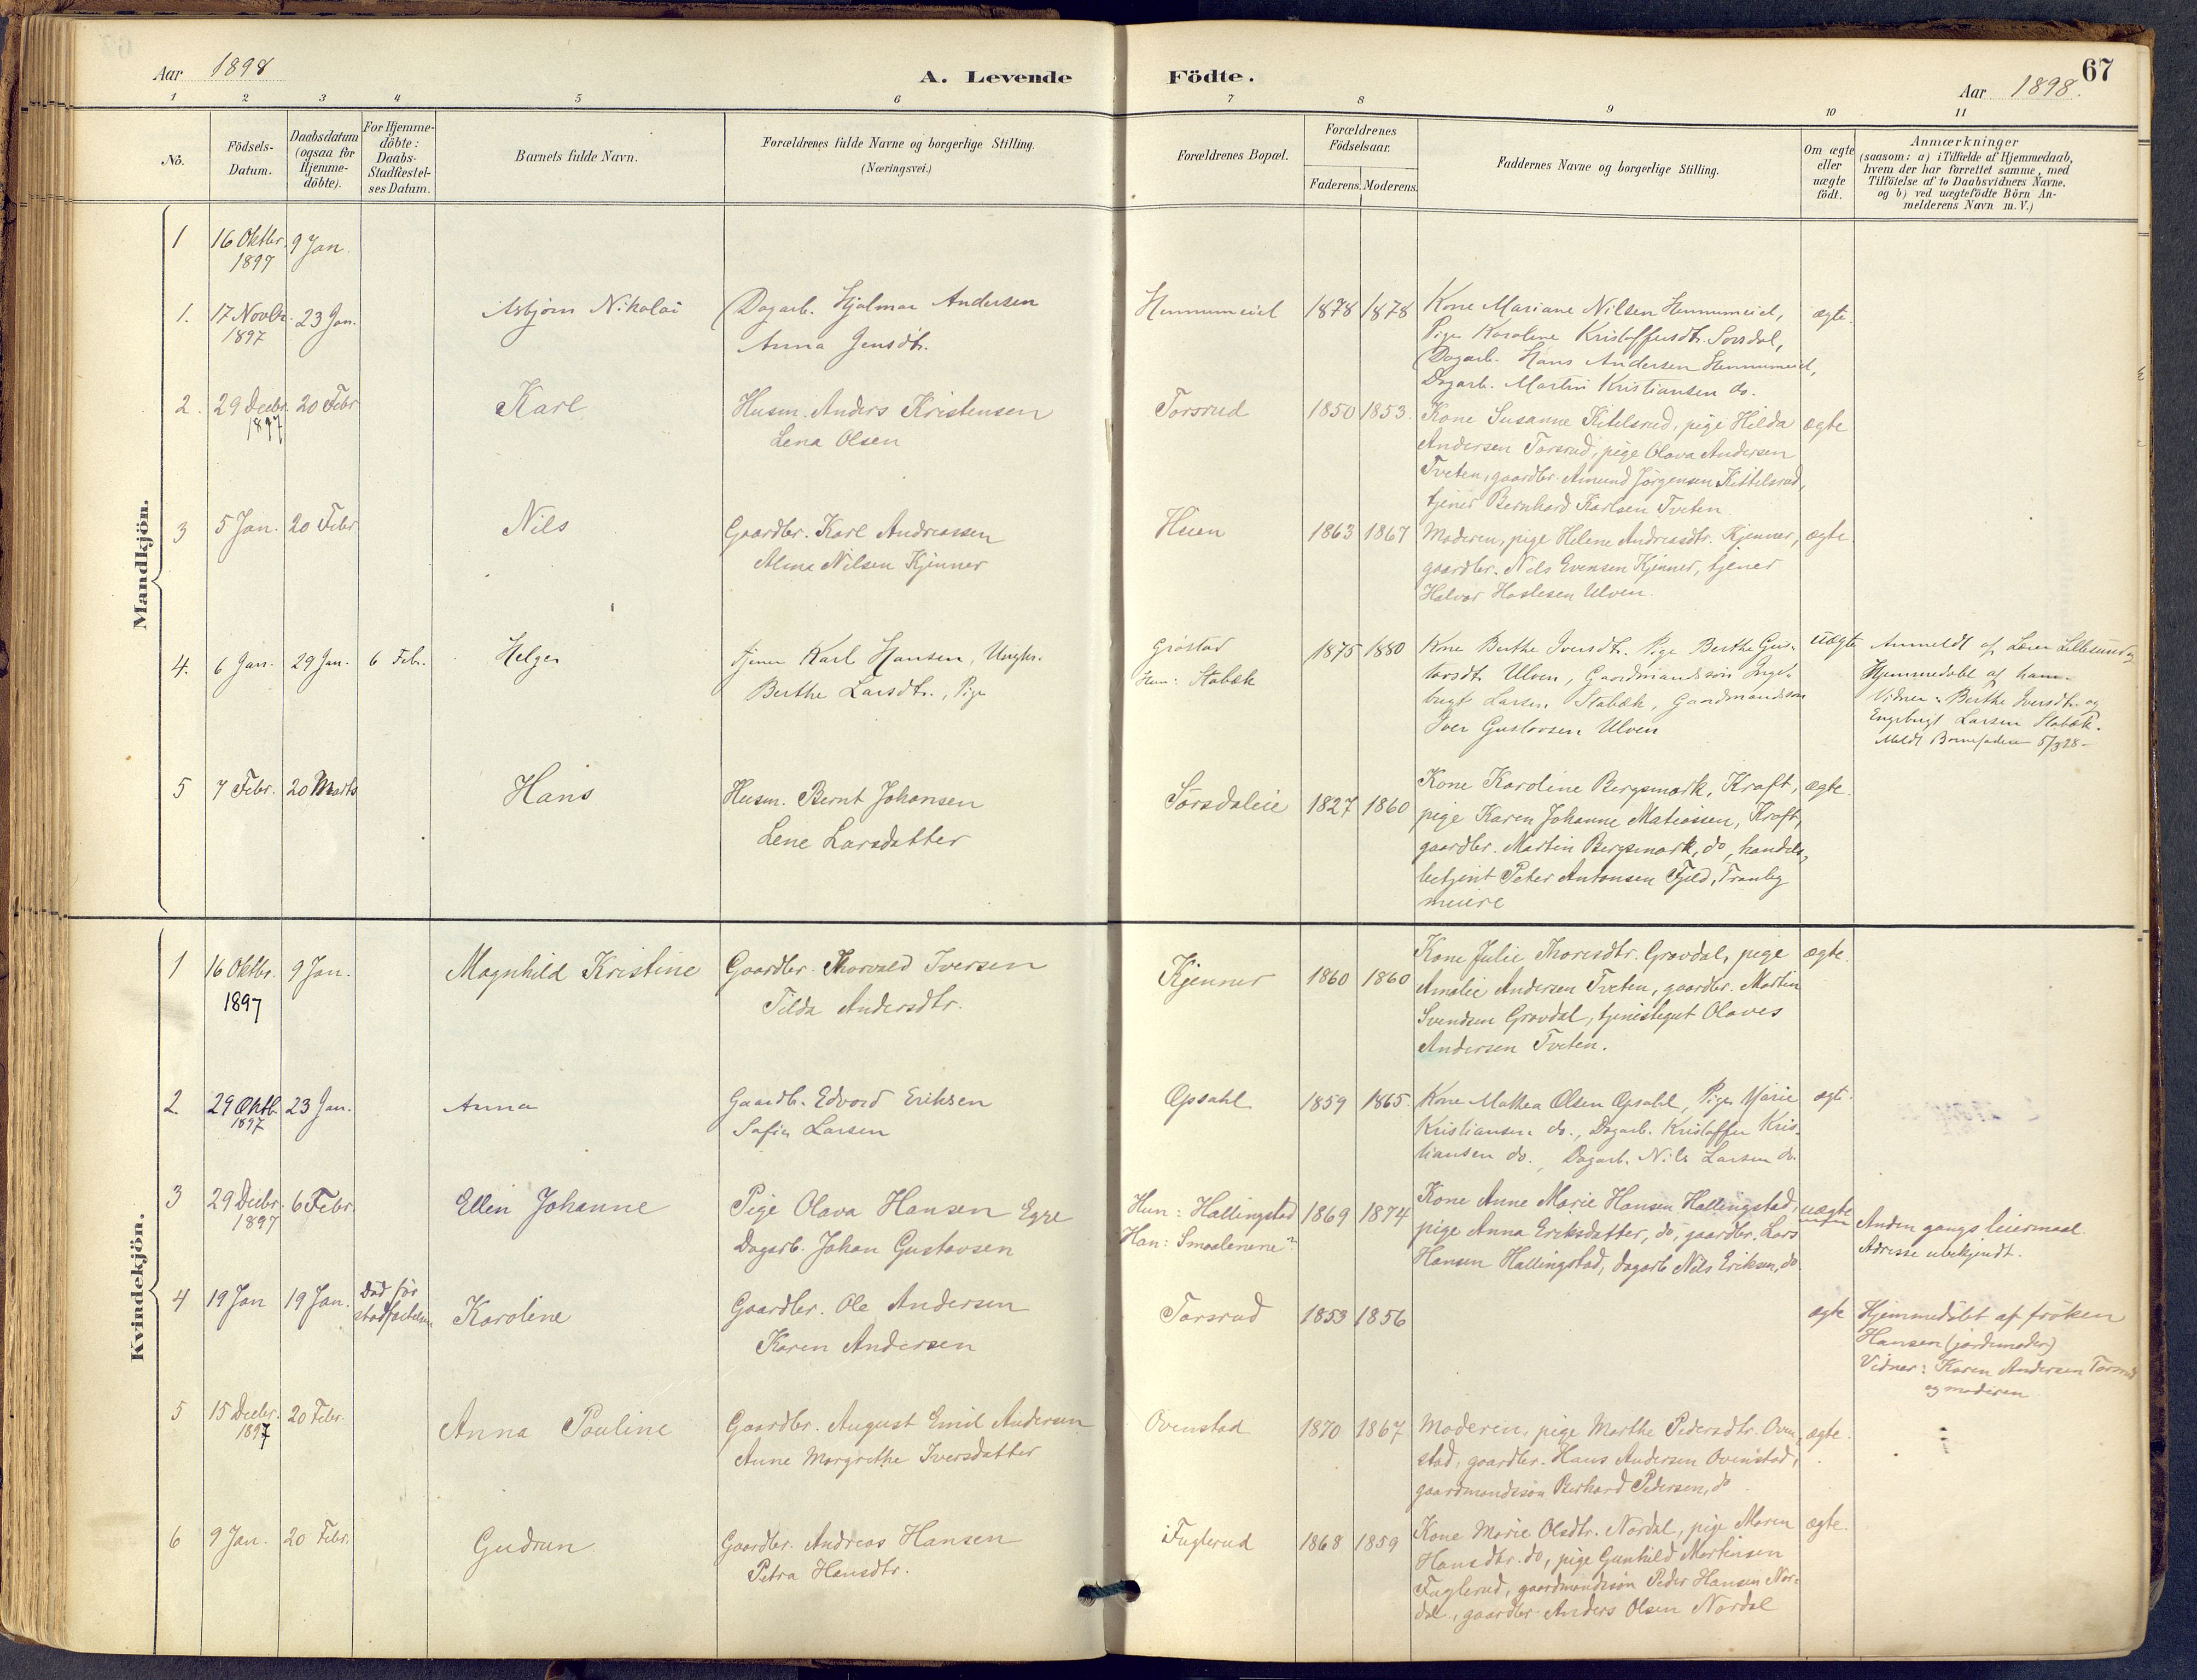 Aar 1898
A. Levende Födte.
67
Aar 1898.
1 2 3 4 5 6 7 8 9 10 11
Nô.
Födsels-
Datum.
Daabsdatum
(ogsaa for
Hjemme-
döbte).
For Hjemme-
döbte:
Daabs-
Stadfæstel-
ses Datum.
Barnets fulde Navn.
Forældrenes fulde Navne og borgerlige Stilling.
(Næringsvei.)
Forældrenes Bopæl.
Forældrenes
Födselsaar.
Faderens. Moderens.
Faddernes Navne og borgerlige Stilling.
Om ægte
eller
uægte
födt.
Anmærkninger
(saasom: a) i Tilfælde af Hjemmedaab,
hvem der har forrettet samme, med
Tilföielse af to Daabsvidners Navne.
og b) ved uægtefödte Börn An-
melderens Navn m.V.)
Mandkjön.
1 16 Oktbr. 9 Jan.
1897
1. 17 Novbr. 23 Jan.
1897
Asbjörn Nikolai
Dagarb. Hjalmar Andersen
Anna Jensdtr.
Hennumeiet 1878 1878
Kone Mariane Nilsen Hennumeiet,
Pige Karoline Kristoffersdtr. Sørsdal,
Dagarb. Hans Andersen Hennumeiet,
Dagarb. Martin Kristiansen do.
ægte.
2. 29 Decbr. 20 Febr
1897
Karl
Husm. Anders Kristensen
Lena Olsen
Torsrud 1850 1853.
Kone Susanne Kitelsrud, pige Hilda
Andersen Torsrud, pige Olava Andersen
Tveten, gaardbr. Amund Jörgensen Kittelsrud,
tjener Bernhard Karlsen Tveten
ægte
3 5 Jan. 20 Febr
Nils
Gaardbr. Karl Andreassen
Alma Nilsen Kjenner
Huen 1863 1867
Moderen, pige Helene Andreasdtr. Kjenner,
gaardbr. Nils Evensen Kjenner, tjener
Halvor Haslesen Ulven.
ægte
4. 6 Jan. 29 Jan. 6 Feb.
Helge
Tjener Karl Hansen, Ungk.
Berthe Larsdtr., Pige
Gröstad
Hun: Stabæk
1875 1880
Kone Berthe Iversdtr. Pige Berthe Gus-
tavsdtr. Ulven, Gaardmandssön Inge-
brigt Larsen Stabæk, Gaardmandssön
Iver Gustavsen Ulven
uægte
Anmeldt af Lærer Lillesund og
Hjemmedöbt af ham.
Vidner: Berthe Iversdtr. og
Engebrigt Larsen Stabæk.
Meldt Barnefaderen 5/3 28-
5 7 Febr. 20 Marts
Hans
Husm. Bernt Johansen
Lene Larsdatter
Sørsdaleie 1827 1860
Kone Karoline Bergsmark, Kraft,
pige Karen Johanne Matiassen, Kraft,
gaardbr. Martin Bergsmark, do, handels-
betjent Peter Antonsen Fjeld, Tranby
meieri
ægte.
Kvindekjön.
1 16 Oktbr. 9 Jan.
1897
Magnhild Kristine
Gaardbr. Thorvald Iversen
Tilda Andersdtr.
Kjenner 1860 1860
Kone Julie Thoresdtr. Gravdal, pige
Amalie Andersen Tveten, gaardbr. Martin
Svendsen Gravdal, tjenestegut Olaves
Andersen Tveten.
ægte.
2. 29 Oktb. 23 Jan.
1897
Anna
Gaardb. Edvard Eriksen
Sofie Larsen
Opsahl 1859 1865.
Kone Mathea Olsen Opsahl, Pige Marie
Kristiansen do., Dagarb. Kristoffer Kris-
tiansen do., Dagarb. Nils Larsen do.
ægte.
3 29 Decbr. 6 Febr.
1897
Ellen Johanne
Pige Olava Hansen Egge
Dagarb. Johan Gustavsen
Hun: Hallingstad
Han: Smaalenene?
1869 1874
Kone Anne Marie Hansen Hallingstad,
pige Anna Eriksdatter, do, gaardbr. Lars
Hansen Hallingstad, dagarb Nils Eriksen, do.
uægte
Anden gangs leiermaal.
Adresse ubekjendt.
4 19 Jan 19 Jan.
Död för
stadfæstelsen
Karoline
Gaardbr. Ole Andersen
Karen Andersen
Torsrud 1853 1856
ægte
Hjemmedöbt af fröken
Hansen (jordemoder)
Vidner: Karen Andersen Torsrud
og moderen
5 15 Decbr. 20 Febr.
1897
Anna Pauline
Gaardbr. August Emil Andersen
Anne Margrethe Iversdatter
Ovenstad 1870 1867
Moderen, pige Marthe Pedersdtr. Oven-
stad, gaardbr. Hans Andersen Ovenstad,
gaardmandssön Berhard Pedersen, do
ægte.
6 9 Jan. 20 Febr.
Gudrun
Gaardbr. Andreas Hansen
Petra Hansdtr.
Fuglerud 1868 1859
Kone Marie Olsdtr. Nordal, pige Maren
Hansdtr. do, pige Gunhild Martinsen
Fuglerud, gaardmandssön Peder Hansen Nor-
dal., gaardbr Anders Olsen Nordal
ægte.